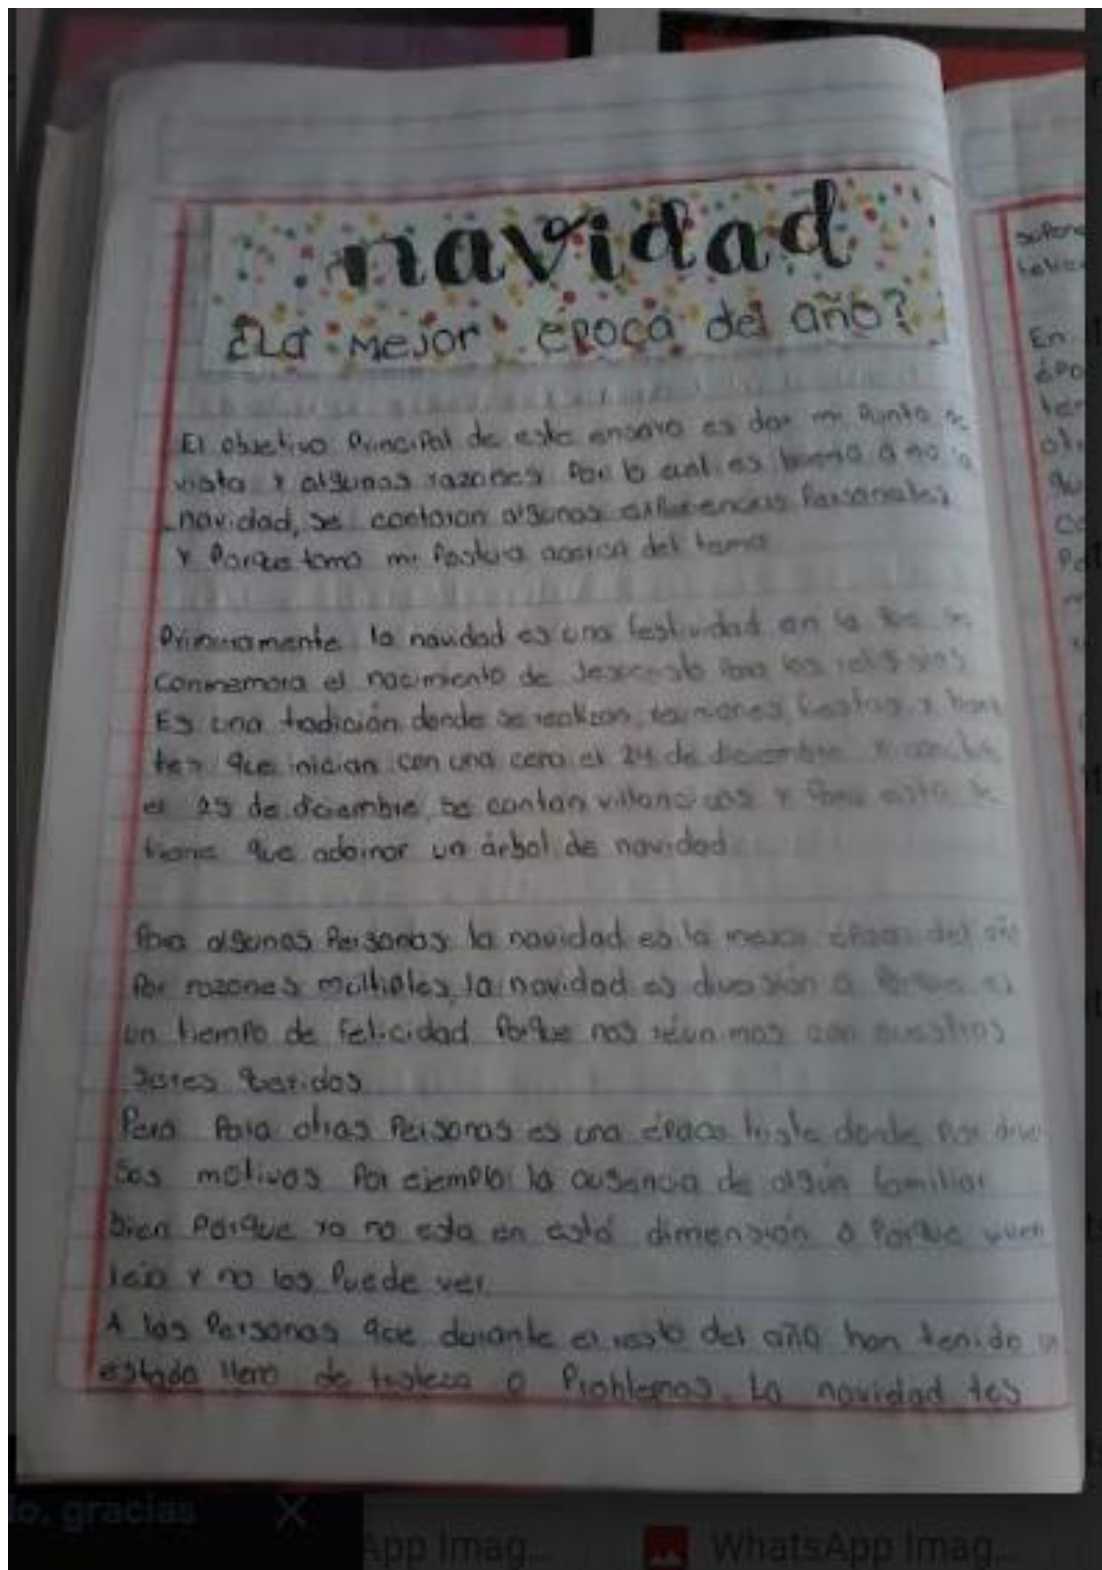 navidad
¿La Mejor época del año?
El objetivo Principal de este ensayo es dar mi Punto de
vista y algunas razones Por lo cual es bueno o no la
navidad, se contaran algunas Personales
y Porque tomo mi Postura acerca del tema
Primeramente la navidad es una festividad en la que se
conmemora el nacimiento de Jesucristo Para los religiosos
Es una tradición donde se realizan reuniones, fiestas y
que inician con una cena el 24 de diciembre
el 25 de diciembre, se cantan villancicos y Para esta se
tiene que adornar un árbol de navidad.
Para algunas Personas la navidad es la mejor época del año
Por razones multiples, la navidad es diversión o Porque es
un tiempo de felicidad Porque nos reunimos con nuestros
seres queridos
Pero Para otras Personas es una época triste donde Por diver
sos motivos Por ejemplo: la ausencia de algun familiar
bien Porque ya no esta en está dimensión o Porque viven
lejo y no los Puede ver.
A las Personas que durante el resto del año han tenido un
estado lleno de tristeza o Problemas. La navidad tes
En
o, gracias
App Imag...
WhatsApp Imag...